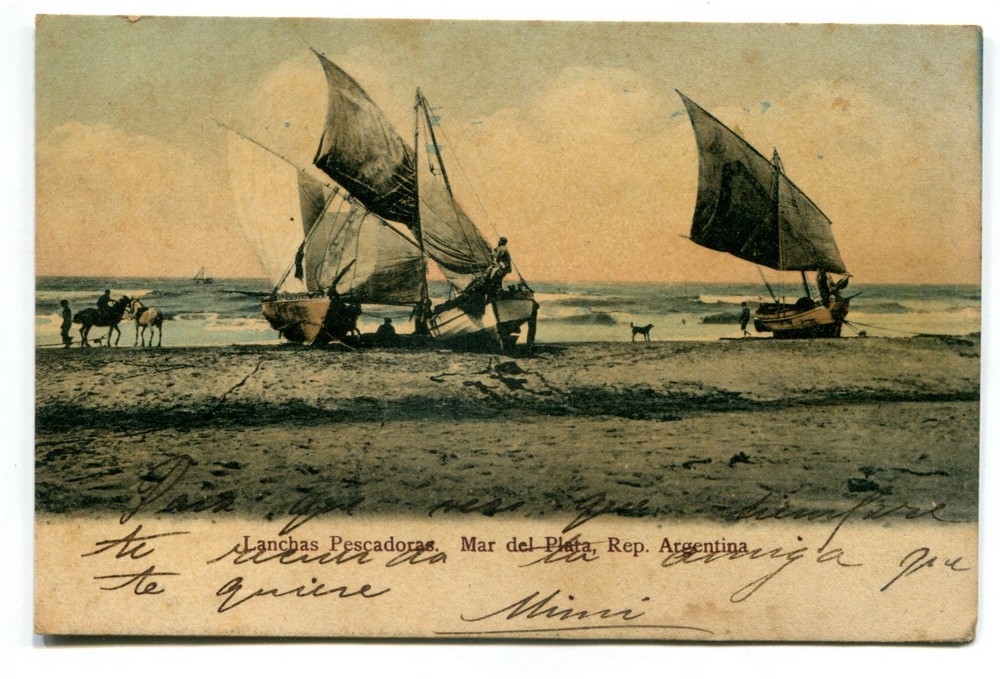 Para que veas que siempre
Lanchas Pescadoras. Mar del Plata, Rep. Argentina
te recuerda tu amiga que
te quiere
Mimi